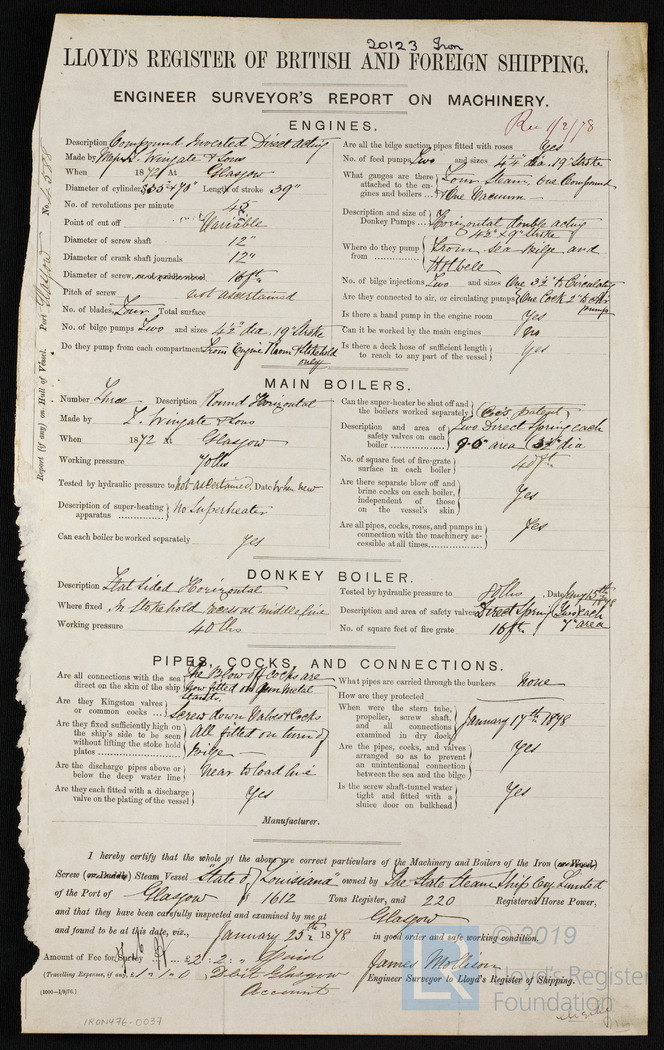 20123 Iron
LLOYD'S REGISTER OF BRITISH AND FOREIGN SHIPPING.
ENGINEER SURVEYOR'S REPORT ON MACHINERY.
Rec 1/2/78
Report (if any) on Hull of Vessel. Port Glasgow No.
ENGINES.
Description Compound Inverted Direct Acting
Made by Wingate & Sons
When 1872 At Glasgow
Diameter of cylinders Length of stroke 39"
No. of revolutions per minute 45
Point of cut off Variable
Diameter of screw shaft 12"
Diameter of crank shaft journals 12"
Diameter of screw, or of paddle wheel 16 ft
Pitch of screw not ascertained
No. of blades, Four Total surface
No. of bilge pumps Two and sizes 4½" dia 19" Stroke
Do they pump from each compartment From Engine Room & Stokehold only
Are all the bilge suction pipes fitted with roses Yes
No. of feed pumps Two and sizes 4½" dia. 19" Stroke
What gauges are there attached to the engines and boilers Four Steam, one Compound, & One Vacuum
Description and size of Donkey Pumps Horizontal double acting 4½" x 9" Stroke
Where do they pump from From Sea Bilge and Hotwell
No. of bilge injections Two and sizes One 3½" to Circulating
Are they connected to air, or circulating pumps One Cock 2" to Air pump
Is there a hand pump in the engine room Yes
Can it be worked by the main engines No
Is there a deck hose of sufficient length to reach to any part of the vessel Yes
MAIN BOILERS.
Number Three Description Round Horizontal
Made by T. Wingate & Sons
When 1872 At Glasgow
Working pressure 70 lbs
Tested by hydraulic pressure to not ascertained, Date When new
Description of super-heating apparatus No Superheater
Can each boiler be worked separately Yes
Can the super-heater be shut off and the boilers worked separately
Description and area of safety valves on each boiler Two Direct Spring each 9.6" area (3½" dia
No. of square feet of fire-grate surface in each boiler 40 ft
Are there separate blow off and brine cocks on each boiler, independent of those on the vessel's skin Yes
Are all pipes, cocks, roses, and pumps in connection with the machinery accessible at all times Yes
DONKEY BOILER.
Description Flat sided Horizontal
Where fixed In Stokehold recess at middle line
Working pressure 40 lbs
Tested by hydraulic pressure to 80 lbs Date Jany 15th 1878
Description and area of safety valves Direct Spring Two each 7" area
No. of square feet of fire grate 16 ft
PIPES, COCKS, AND CONNECTIONS.
Are all connections with the sea direct on the skin of the ship The Blow off cocks are now fitted on Gun metal stands.
Are they Kingston valves or common cocks Screw down Valves & Cocks
Are they fixed sufficiently high on the ship's side to be seen without lifting the stoke hold plates All fitted on turn of bilge
Are the discharge pipes above or below the deep water line Near to load line
Are they each fitted with a discharge valve on the plating of the vessel Yes
What pipes are carried through the bunkers None
How are they protected
When were the stern tube, propeller, screw shaft, and all connections examined in dry dock January 17th 1878
Are the pipes, cocks, and valves arranged so as to prevent an unintentional connection between the sea and the bilge Yes
Is the screw shaft-tunnel water tight and fitted with a sluice door on bulkhead Yes
Manufacturer.
I hereby certify that the whole of the above are correct particulars of the Machinery and Boilers of the Iron (or Wood)
Screw (or Paddle) Steam Vessel "State of Louisiana" owned by The State Steam Ship Coy Limited
of the Port of Glasgow of 1612 Tons Register, and 220 Registered Horse Power,
and that they have been carefully inspected and examined by me at Glasgow
and found to be at this date, viz., January 25th 1878 in good order and safe working condition.
Amount of Fee for Survey £2: 2: " Paid James Mollison
(Travelling Expenses, if any, Debit Glasgow Account Engineer Surveyor to Lloyd's Register of Shipping.
IRON476-0037
© 2019
Lloyd's Register
Foundation
LR